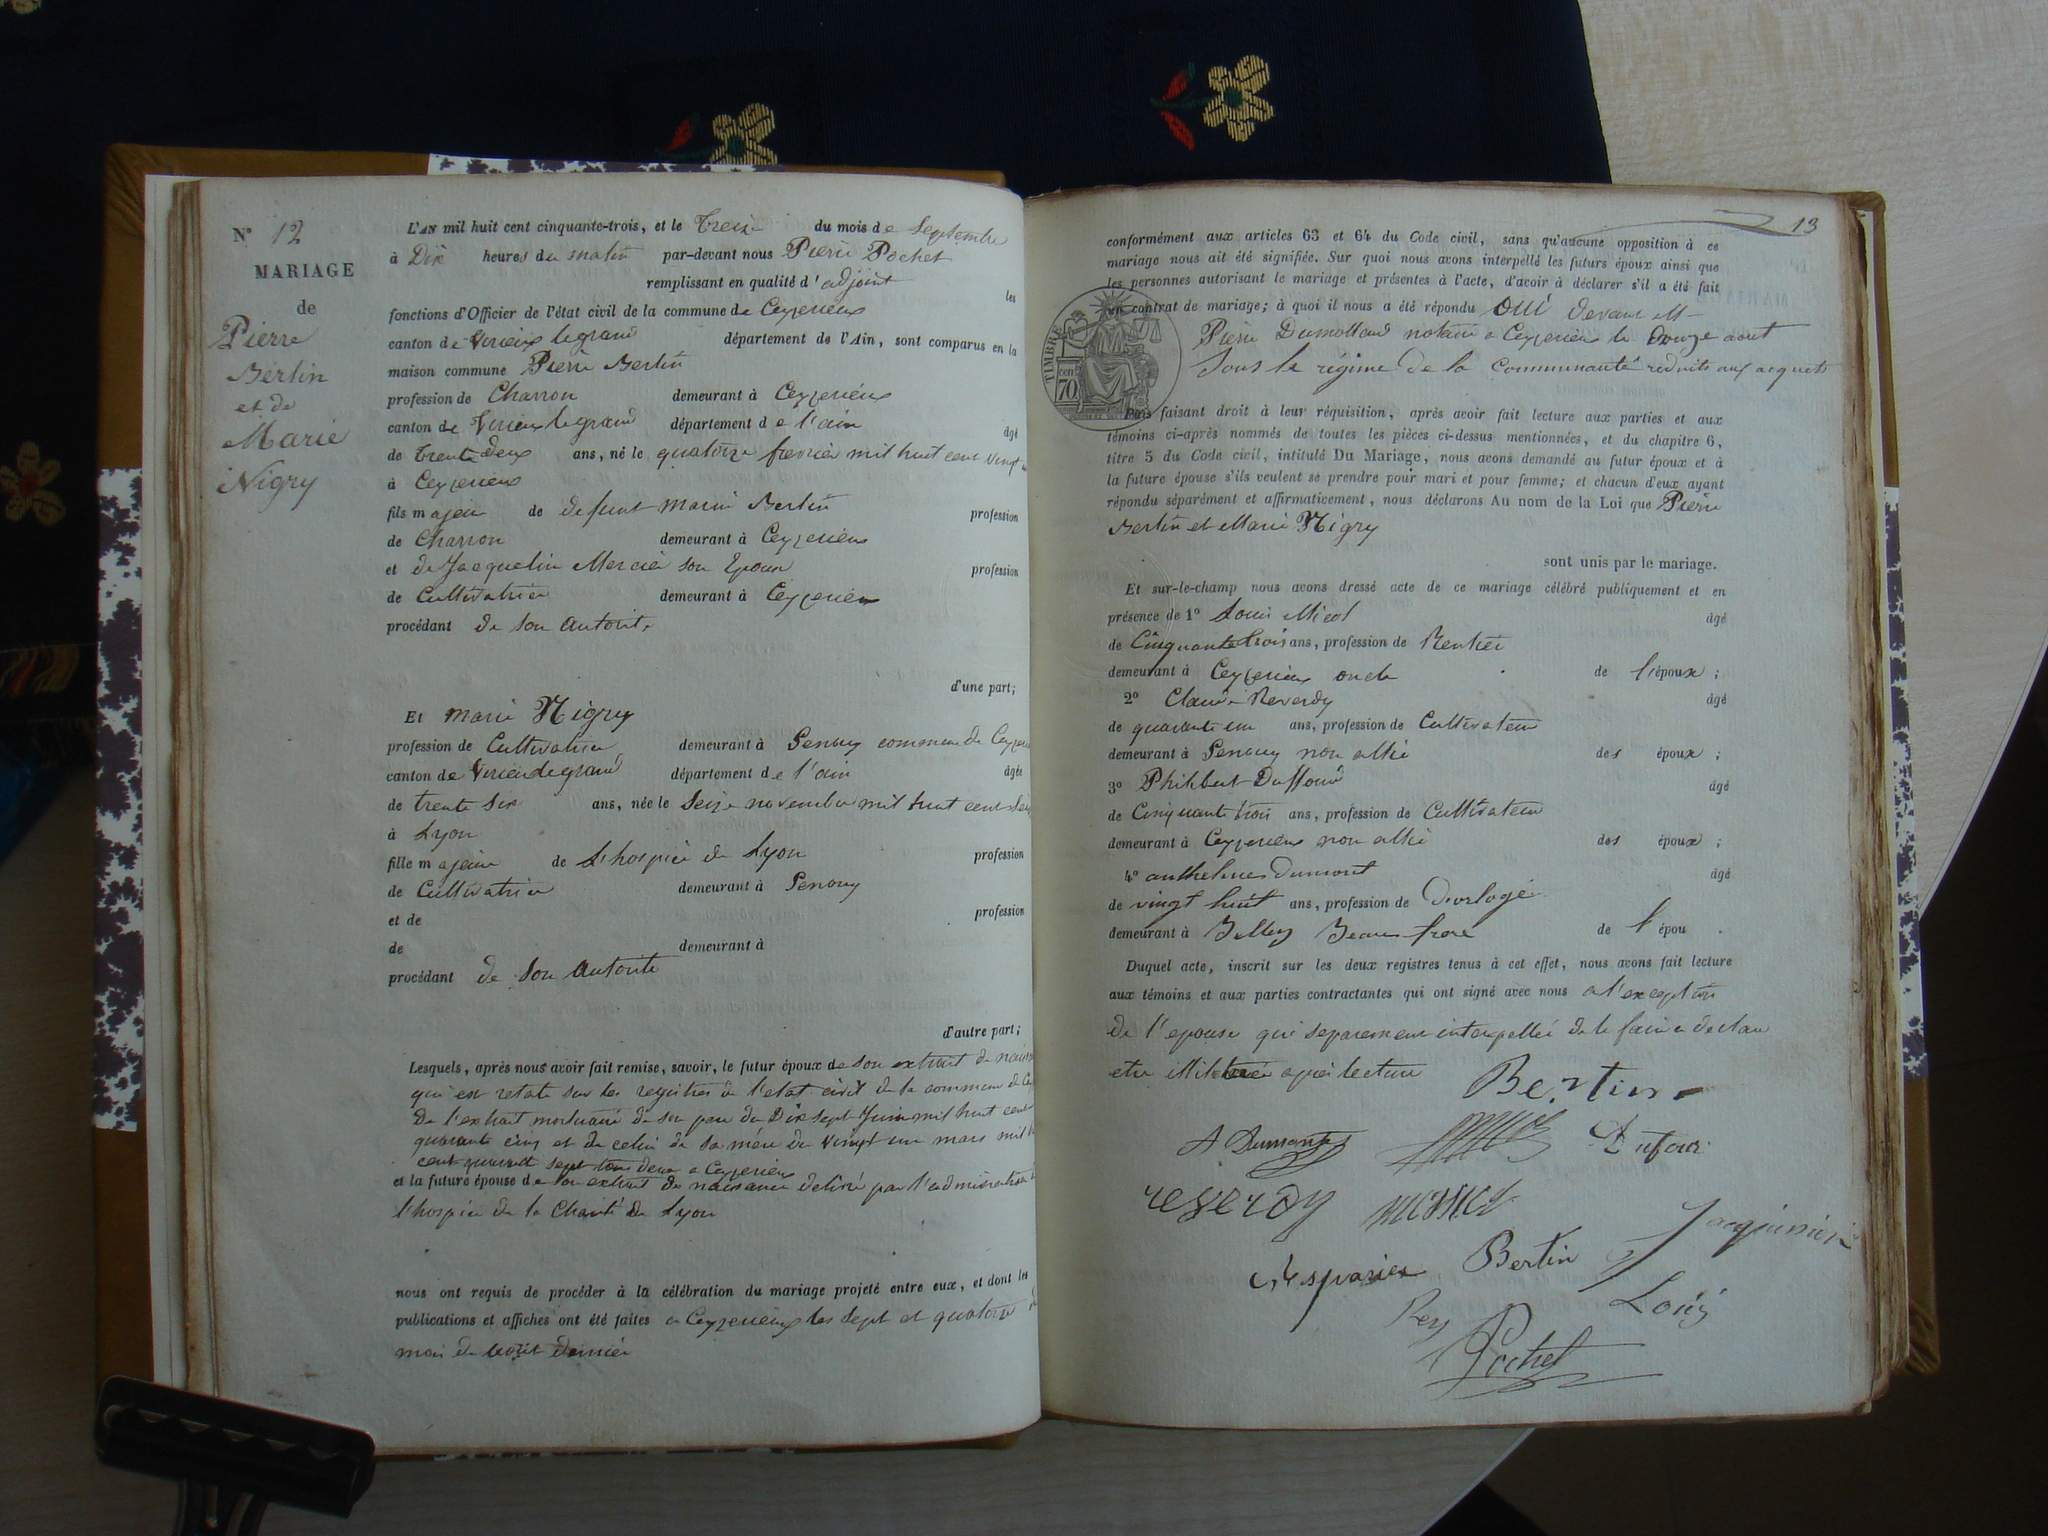 N° 12
MARIAGE
de
Pierre
Bertin
et de
Marie
Nigry
L'AN mil huit cent cinquante-trois, et le treize du mois de Septembre
à Dix heures du matin par-devant nous Pierre Pochet
remplissant en qualité d'adjoint les
fonctions d'Officier de l'état civil de la commune de Ceyzerieux
canton de Virieux legrand département de l'Ain, sont comparus en la
maison commune Pierre Bertin
profession de Charron demeurant à Ceyzerieux
canton de Virieux legrand département de l'ain âgé
de trente deux ans, né le quatorze fevrier mil huit cent vingt
à Ceyzerieux
fils majeur de defunt marin Bertin profession
de Charron demeurant à Ceyzerieux
et de Jacqueline Mercier son Epouse profession
de Cultivatrice demeurant à Ceyzerieux
procédant de son autorité
d'une part;
Et marie Nigry
profession de Cultivatrice demeurant à Penouy commune de
canton de Virieu le grand département de l'ain âgée
de trente six ans, née le Seize novembre mil huit cent seize
à Lyon
fille majeure de L'hospice de Lyon profession
de Cultivatrice demeurant à Penouy
et de profession
de demeurant à
procédant de son autorité
d'autre part;
Lesquels, après nous avoir fait remise, savoir, le futur époux de son extrait de
qui est relaté sur les registres de l'etat civil de la commune de
De l'extrait mortuaire de son pere du Dix sept Juin mil huit cent
quarante cinq et de celui de sa mére du Vingt un mars mil
cent quarante sept tous deux a Ceyzerieux
et la future épouse de son extrait de naissance delivré par l'administration
l'hospice de la Charité de Lyon
nous ont requis de procéder à la célébration du mariage projeté entre eux, et dont les
publications et affiches ont été faites a Ceyzerieux les sept et quatorze
mois de aout dernier
13
conformément aux articles 63 et 64 du Code civil, sans qu'aucune opposition à ce
mariage nous ait été signifiée. Sur quoi nous avons interpellé les futurs époux ainsi que
les personnes autorisant le mariage et présentes à l'acte, d'avoir à déclarer s'il a été fait
un contrat de mariage; à quoi il nous a été répondu OUI devant M
Pierre Dumollard notaire a Ceyzerieu le douze aout
Sous le régime De la Communauté reduite aux acquets
TIMBRE
70 cen
Puis faisant droit à leur réquisition, après avoir fait lecture aux parties et aux
témoins ci-après nommés de toutes les pièces ci-dessus mentionnées, et du chapitre 6,
titre 5 du Code civil, intitulé Du Mariage, nous avons demandé au futur époux et à
la future épouse s'ils veulent se prendre pour mari et pour femme; et chacun d'eux ayant
répondu séparément et affirmativement, nous déclarons Au nom de la Loi que Pierre
Bertin et Marie Nigry
sont unis par le mariage.
Et sur-le-champ nous avons dressé acte de ce mariage célébré publiquement et en
présence de 1° Louis Micol âgé
de Cinquante trois ans, profession de Rentier
demeurant à Ceyzerieux oncle de l'époux;
2° Claude Reverdy âgé
de quarante un ans, profession de Cultivateur
demeurant à Penouy non allié des époux;
3° Philibert Duffour âgé
de Cinquante trois ans, profession de Cultivateur
demeurant à Ceyzerieux non allié des époux;
4° anthelme Dumont âgé
de vingt huit ans, profession de
demeurant à Belley Beau frere de l'épou
Duquel acte, inscrit sur les deux registres tenus à cet effet, nous avons fait lecture
aux témoins et aux parties contractantes qui ont signé avec nous a l'exception
de l'epouse qui separement interpellée de le faire a declaré
etre illiterée après lecture
Bertin
A Dumont
Dufour
reverdy
Bertin
Jacquinier
Rey
Pochet